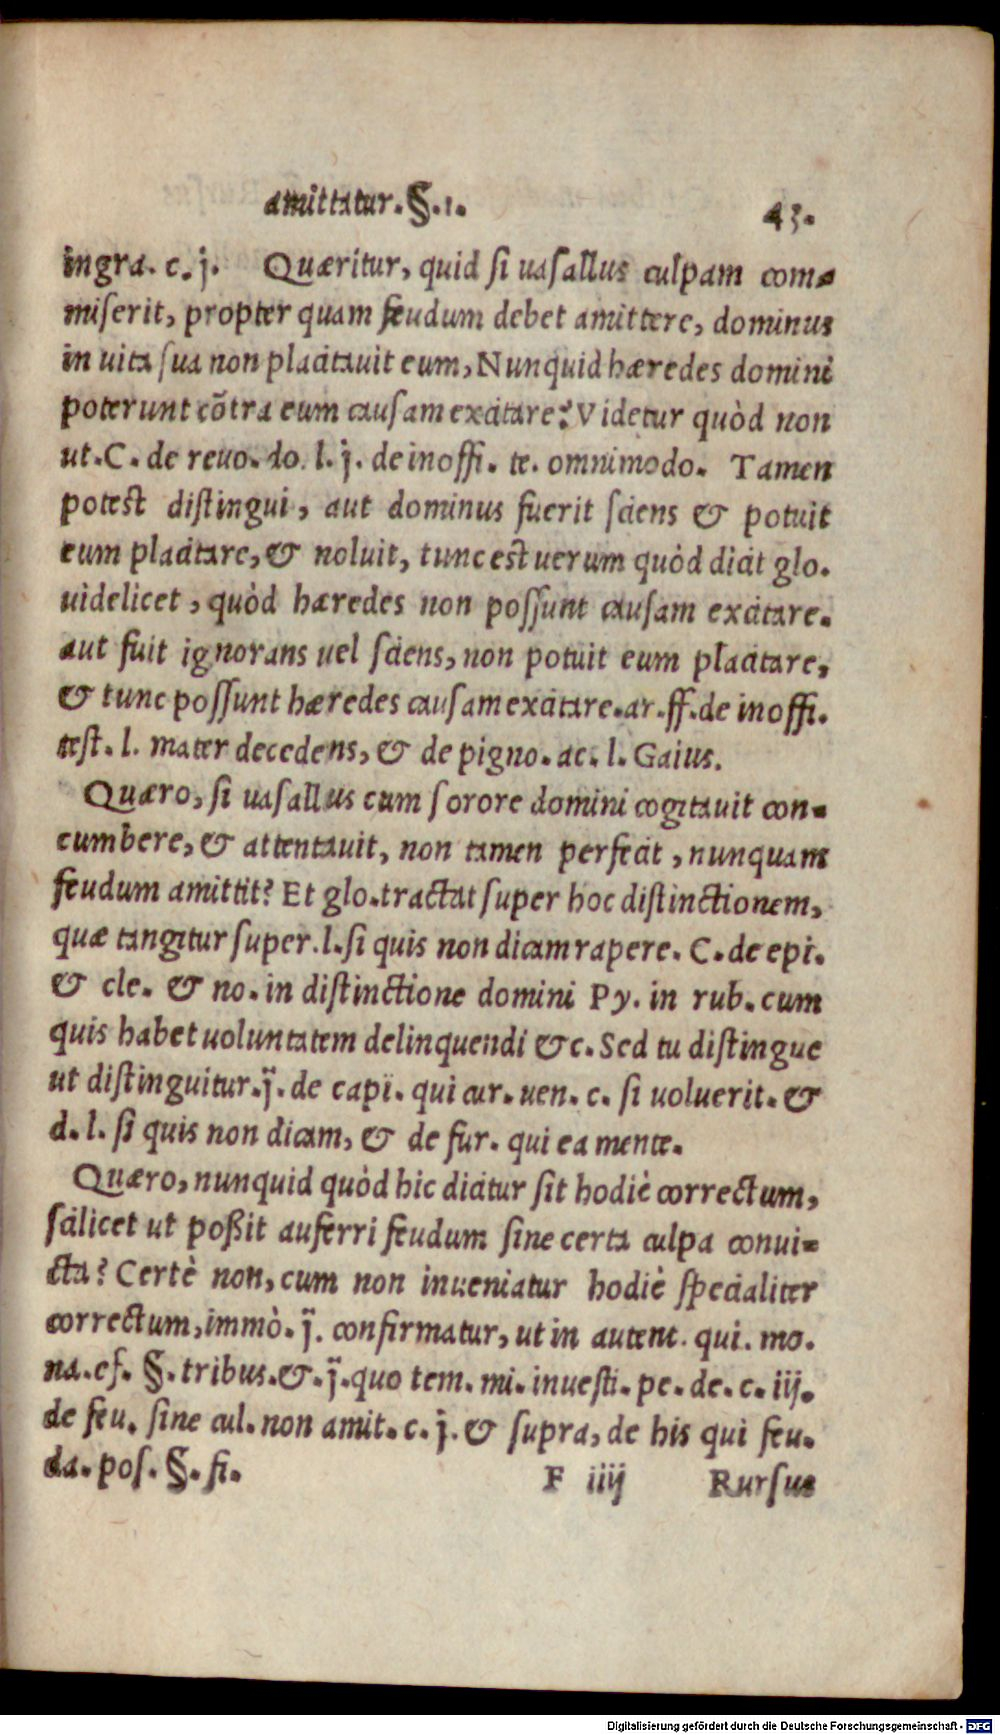 amittatur.§.1.
43.
ingra. c. j. Quæritur, quid si uasallus culpam com-
miserit, propter quam feudum debet amittere, dominus
in uita sua non placitauit eum, Nunquid hæredes domini
poterunt cõtra eum causam excitare? Videtur quòd non
ut. C. de reuo. do. l. j. de inoffi. te. omnimodo. Tamen
potest distingui, aut dominus fuerit sciens & potuit
eum placitare, & noluit, tunc est uerum quòd dicit glo.
uidelicet, quòd hæredes non possunt causam excitare.
aut fuit ignorans uel sciens, non potuit eum placitare,
& tunc possunt hæredes causam excitare. ar. ff. de inoffi.
test. l. mater decedens, & de pigno. ac. l. Gaius.
Quæro, si uasallus cum sorore domini cogitauit con-
cumbere, & attentauit, non tamen perfecit, nunquam
feudum amittit? Et glo. tractat super hoc distinctionem,
quæ tangitur super. l. si quis non dicam rapere. C. de epi.
& cle. & no. in distinctione domini Py. in rub. cum
quis habet uoluntatem delinquendi &c. Sed tu distingue
ut distinguitur. j̈. de capi. qui cur. uen. c. si uoluerit. &
d. l. si quis non dicam, & de fur. qui ea mente.
Quæro, nunquid quòd hic dicitur sit hodiè correctum,
scilicet ut poßit auferri feudum sine certa culpa conui-
cta? Certè non, cum non inueniatur hodiè specialiter
correctum, immò. j̈. confirmatur, ut in autent. qui. mo.
na. ef. §. tribus. &. j̈. quo tem. mi. inuesti. pe. de. c. iij.
de feu. sine cul. non amit. c. j. & supra, de his qui feu-
da. pos. §. fi.
F iiij Rursus
Digitalisierung gefördert durch die Deutsche Forschungsgemeinschaft - DFG